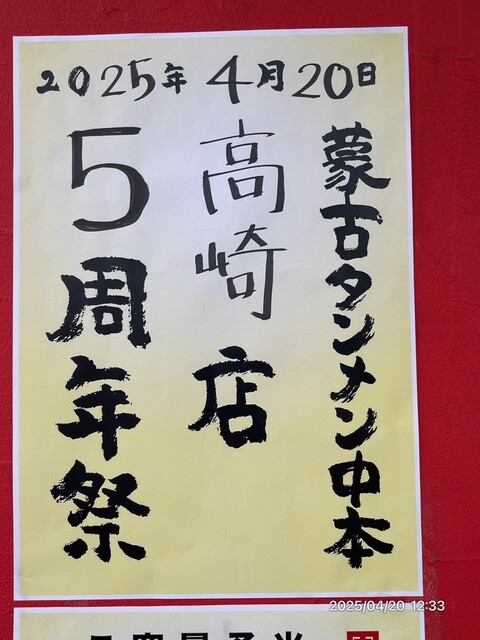 2025年 4月20日
蒙古タンメン中本
高崎店
5周年祭
2025/04/20 12:33